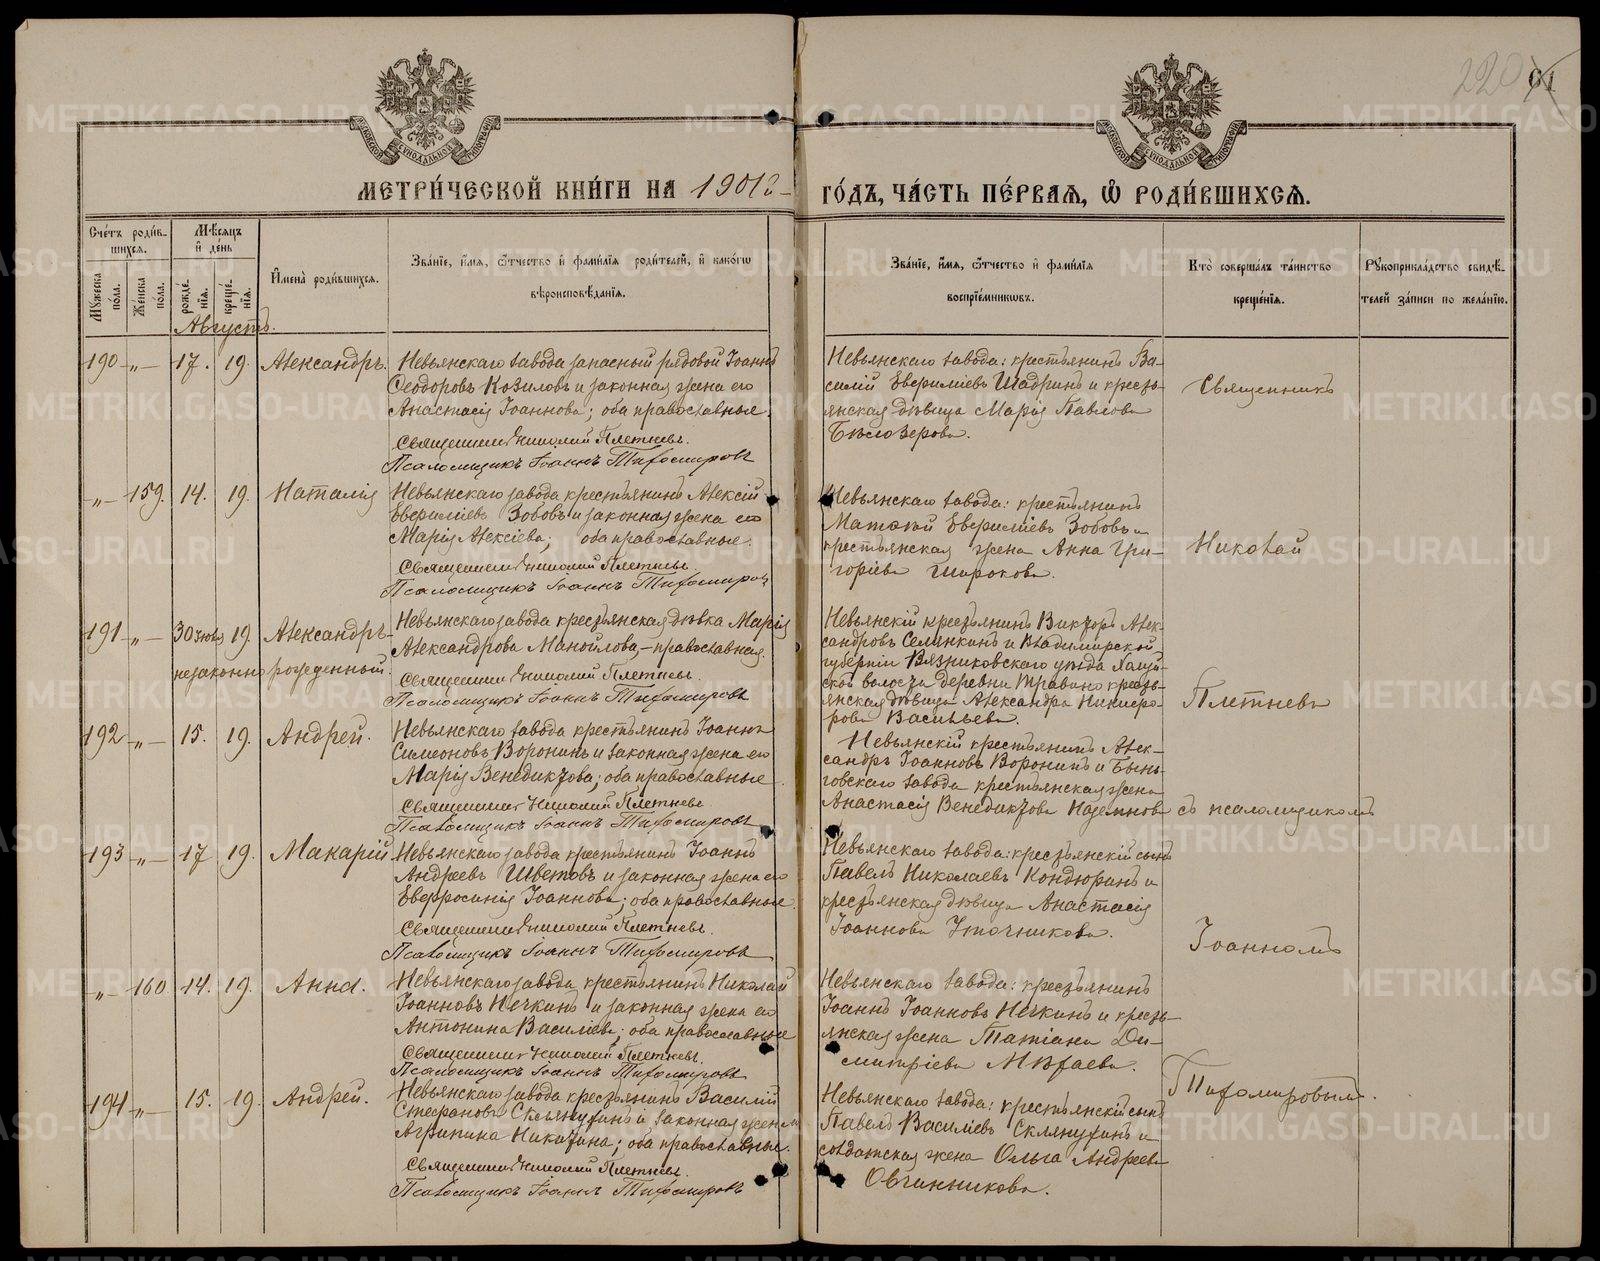 220 91
МЕТРИ́ЧЕСКОЙ КНИ́ГИ НА 1901й ГО́ДЪ, ЧА́СТЬ ПЕ́РВАѦ, Ѡ РОДИ́ВШИХСѦ.
Сче́тъ роди́вшихся.
Мѣ́сяцъ и де́нь
Имена̀ роди́вшихся.
Зва́нїе, и́мя, ѻ́тчество и фами́лїя роди́телей, и како́гѡ вѣроисповѣ́данїя.
Зва́нїе, и́мя, ѻ́тчество и фами́лїя воспрїе́мниковъ.
Кто̀ соверша́лъ та́инство креще́нїя.
Рꙋкоприкла́дство свидѣ́телей за́писи по жела́нїю.
Мꙋ́жеска по́ла.
Же́нска по́ла.
рожде́нїя.
креще́нїя.
Августъ.
190 -„- 17. 19. Александръ.
Невьянскаго завода запасный рядовой Іоаннъ
Ѳеодоровъ Козиловъ и законная жена его
Анастасія Іоаннова; оба православные.
Священникъ Николай Плетневъ.
Псаломщикъ Іоаннъ Тихомировъ
Невьянскаго завода: крестьянинъ Ва-
силій Шадринъ и кресть-
янская дѣвица Марія Павлова
Бѣлозерова.
Священникъ
-„- 159. 14. 19. Наталія
Невьянскаго завода крестьянинъ Алексій
Зобовъ и законная жена его
Марія Алексіева; оба православные.
Священникъ Николай Плетневъ.
Псаломщикъ Іоаннъ Тихомировъ
Невьянскаго завода: крестьянинъ
Зобовъ и
крестьянская жена Анна Гри-
горіева Широкова.
Николай
191 -„- 30 19. Александръ
незаконнорожденный.
Невьянскаго завода крестьянская дѣвка Марія
Александрова Манойлова, - православная.
Священникъ Николай Плетневъ.
Псаломщикъ Іоаннъ Тихомировъ
Невьянскій крестьянинъ Викторъ Алек-
сандровъ Селянкинъ и Владимірской
губерніи Вязниковскаго уѣзда
ской волости деревни крес-
янская дѣвица Александра Никифо-
рова Васильева.
Плетневъ
192 -„- 15. 19. Андрей.
Невьянскаго завода крестьянинъ Іоаннъ
Симеоновъ Воронинъ и законная жена его
Марія Венедиктова; оба православные
Священникъ Николай Плетневъ
Псаломщикъ Іоаннъ Тихомировъ
Невьянскій крестьянинъ Алек-
сандръ Іоанновъ Воронинъ и Бынь-
говскаго завода крестьянская жена
Анастасія Венедиктова
съ псаломщикомъ
193 -„- 17 19. Макарій
Невьянскаго завода крестьянинъ Іоаннъ
Андреевъ Швецовъ и законная жена его
Евфросинія Іоаннова; оба православные.
Священникъ Николай Плетневъ.
Псаломщикъ Іоаннъ Тихомировъ
Невьянскаго завода: крестьянскій сынъ
Павелъ Николаевъ Кондюринъ и
крестьянская дѣвица Анастасія
Іоаннова Источникова.
Іоанномъ
-„- 160 14. 19. Анна.
Невьянскаго завода крестьянинъ Николай
Іоанновъ Нечкинъ и законная жена его
Антонина Василіева; оба православные
Священникъ Николай Плетневъ.
Псаломщикъ Іоаннъ Тихомировъ
Невьянскаго завода: крестьянинъ
Іоаннъ Іоанновъ Нечкинъ и кресть-
янская жена Татіана Ди-
митріева
Тихомировымъ.
194 -„- 15. 19. Андрей.
Невьянскаго завода крестьянинъ Василій
Стефановъ Склянухинъ и законная жена
Агрипина Никитина; оба православные.
Священникъ Николай Плетневъ.
Псаломщикъ Іоаннъ Тихомировъ
Невьянскаго завода: крестьянскій сынъ
Павелъ Василіевъ Склянухинъ и
солдатская жена Ольга Андреева
Овчинникова.
METRIKI.GASO-URAL.RU